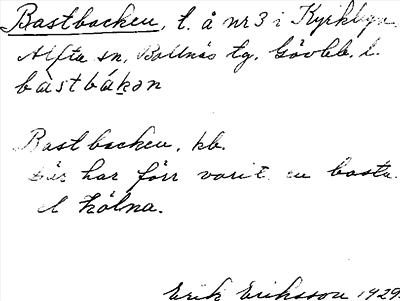 Bastbacken, t. å nr 3 i Kyrkbyn
Alfta sn, Bollnäs tg, Gävleb. l.
bàstbákən
Bastbacken, kb.
Där har förr varit en bastu
el kölna.
Erik Eriksson 1929.